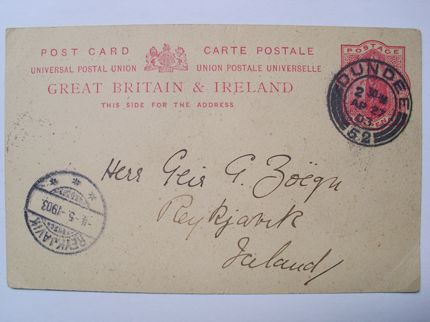 POST CARD CARTE POSTALE
UNIVERSAL POSTAL UNION UNION POSTALE UNIVERSELLE
GREAT BRITAIN & IRELAND
THIS SIDE FOR THE ADDRESS
POSTAGE
DUNDEE
AP 27
03
52
Herr Geir G. Zoëga
Reykjavik
Iceland
REYKJAVIK
-5-1903